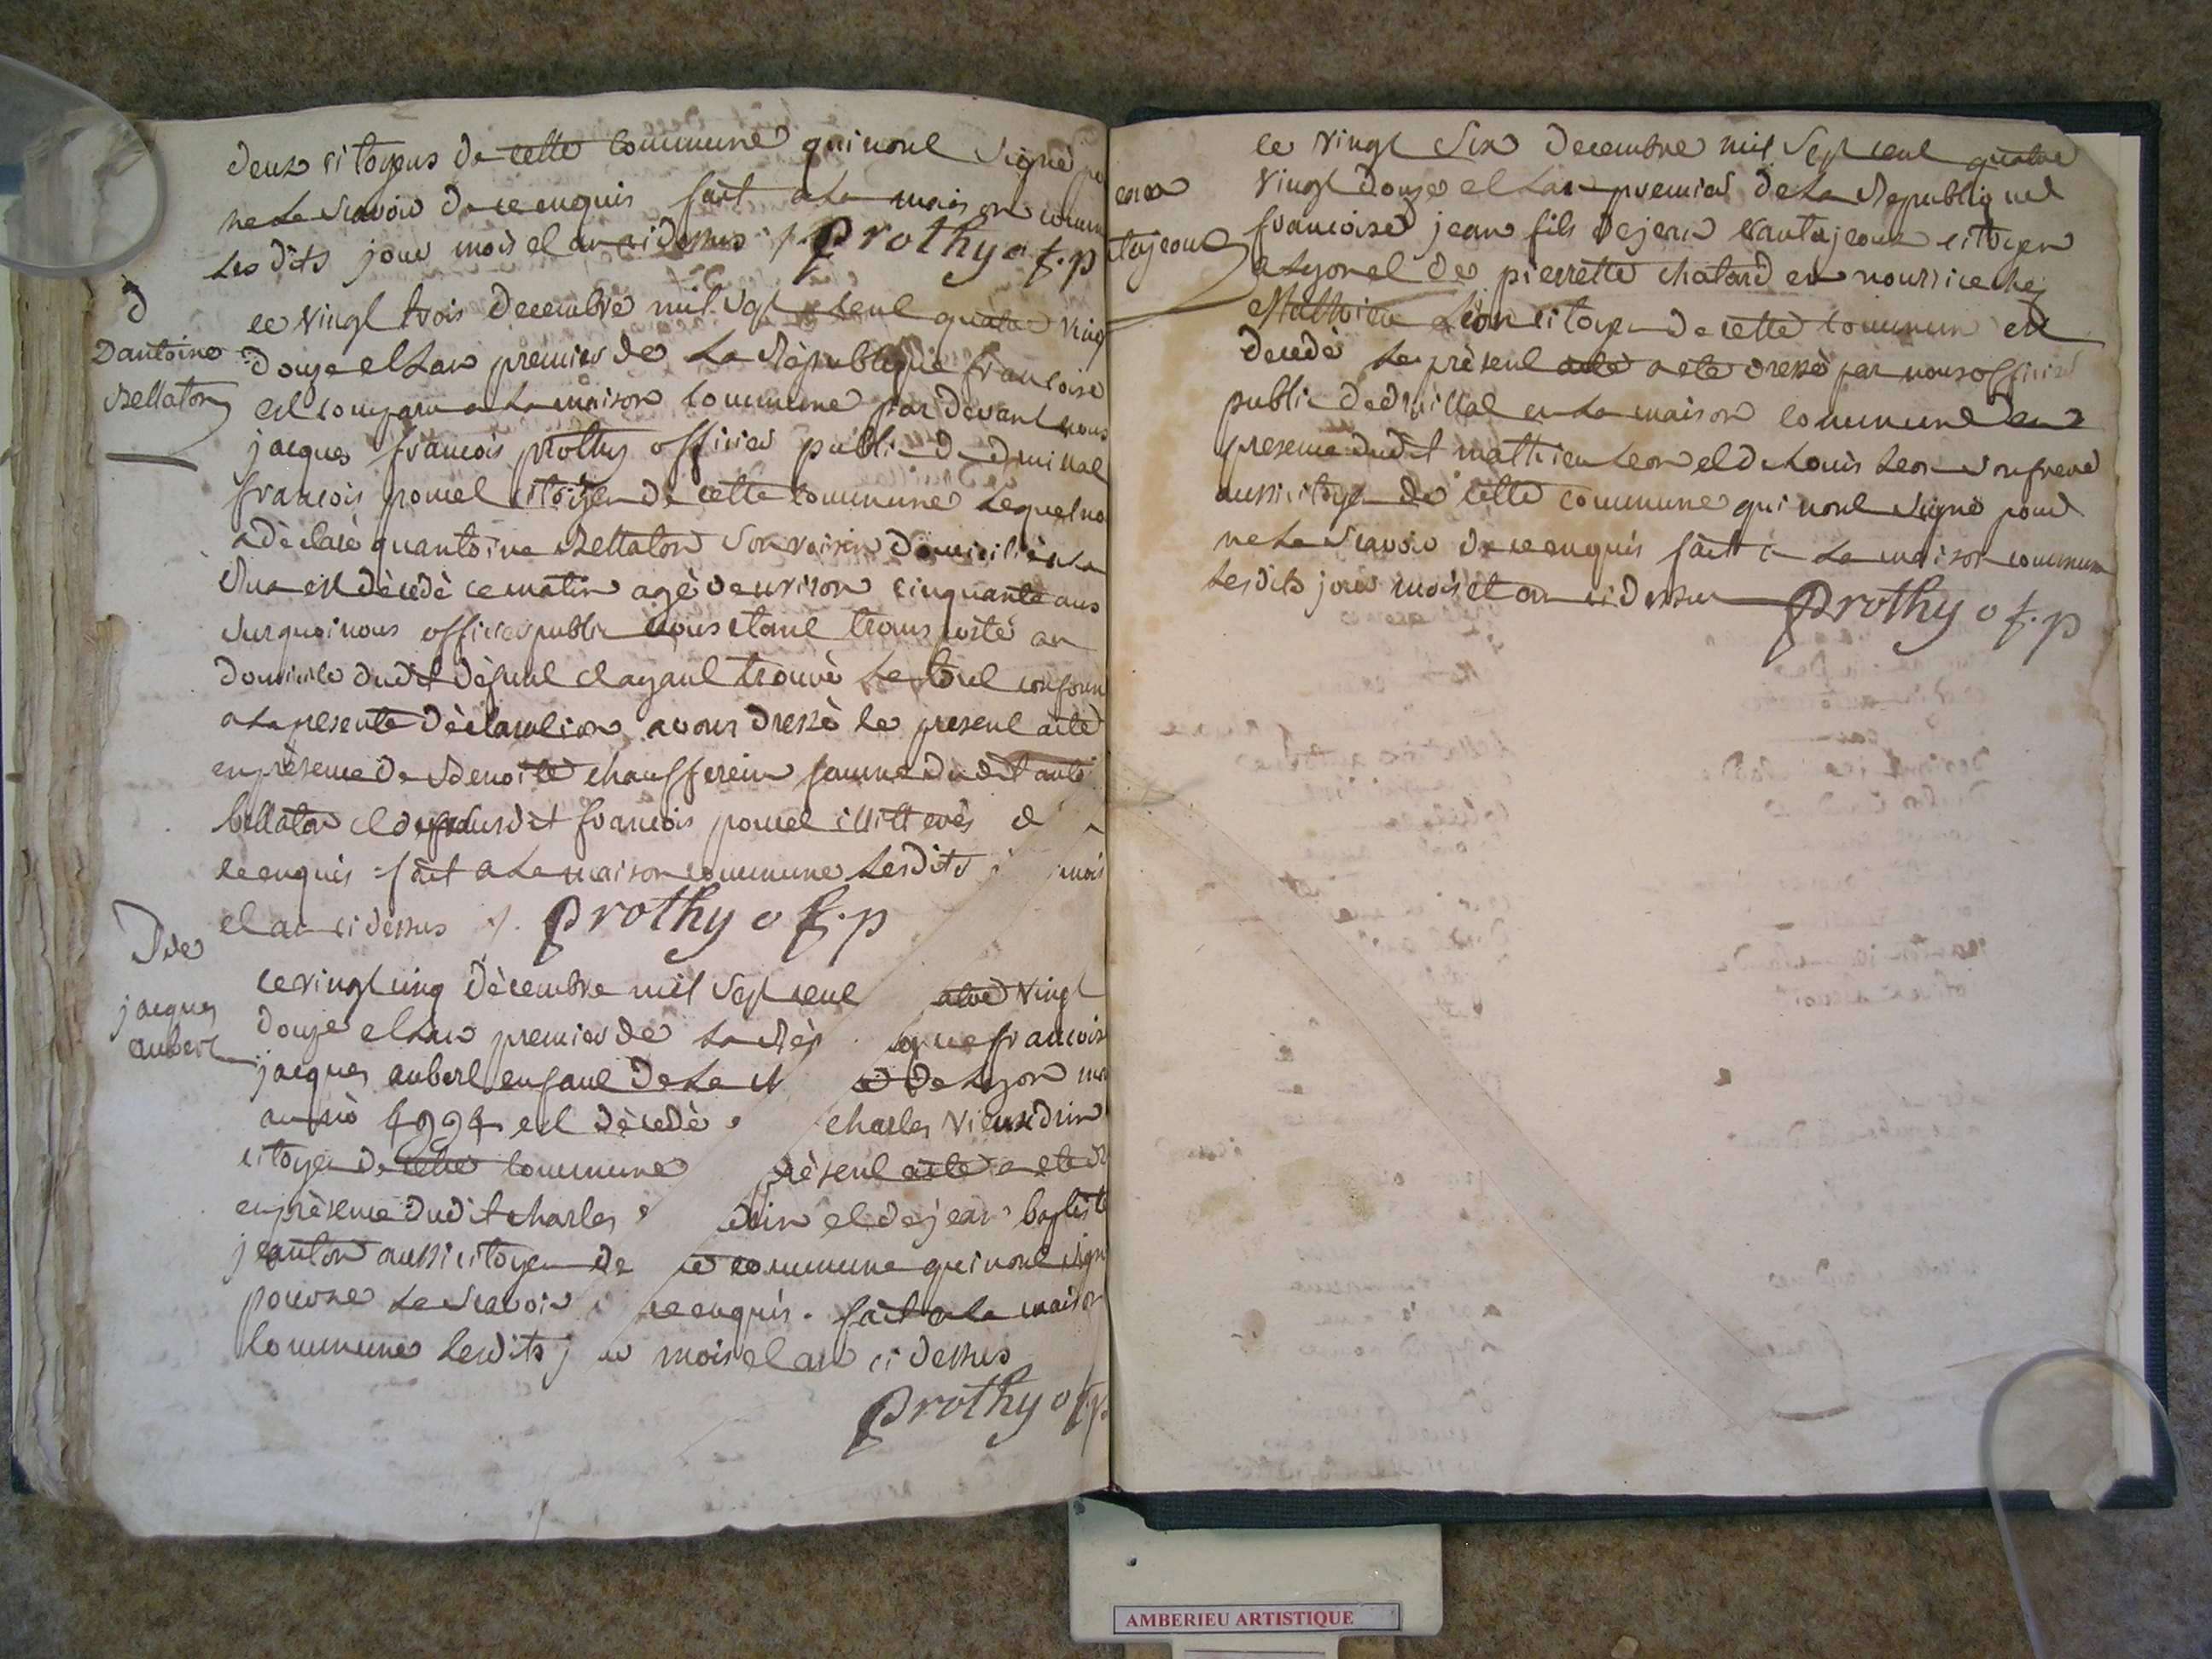 deux citoyens de cette commune qui nont signé
ne le scavoir de ce enquis fait a la maison comm
les dits jour mois et an ci dessus ./. Prothy of.p
D
Dantoine
Bellaton
ce vingt trois decembre mil sept cent quatre ving
douze et lan premier de la République francoise
est comparu a la maison commune par devant nous
jacques francois prothy officier public de druillat
francois poncet citoyen de cette commune lequel no
a déclaré quantoine Bellaton son voisin domicilié
est décédé ce matin agé denviron cinquante ans
surquoi nous officier public nous etant transporté au
domicile dudit défunt et ayant trouvé le tout conform
a la presente déclaration avons dressé le present acte
en présence de Benoite femme dudit antoi
bellaton et de susdit francois poncet illitterés d
ce enquis fait a la maison commune lesdits mois
et an ci dessus ./. Prothy of.p
D de
jacques
aubert
ce vingt cinq décembre mil sept cent atre vingt
douze et lan premier de la Rép que francois
jacques aubert enfant de la é de Lyon
numéro est décédé charles
citoyen de cette commune présent acte a ete
en présence dudit charles et de jean baptiste
jeanton aussi citoyen de commune qui nont sign
pour ne le scavoir ce enquis . fait a la maison
commune lesdits j mois et an ci dessus
Prothy of.p.
tajeour
ce vingt six decembre mil sept cent quatre
vingt douze et lan premier de la Republique
francoise jean fils de jean citoyen
a Lyon et de pierrette chatard en nourrice chez
Mathieu Leon citoyen de cette commune est
decedé le présent acte a ete dressé par nous officier
public de druillat en la maison commune en
presence dudit mathieu Leon et de Louis Leon son frere
aussi citoyen de cette commune qui nont signé pour
ne le scavoir de ce enquis fait a la maison commune
lesdits jour mois et an ci dessus Prothy of.p
AMBERIEU ARTISTIQUE